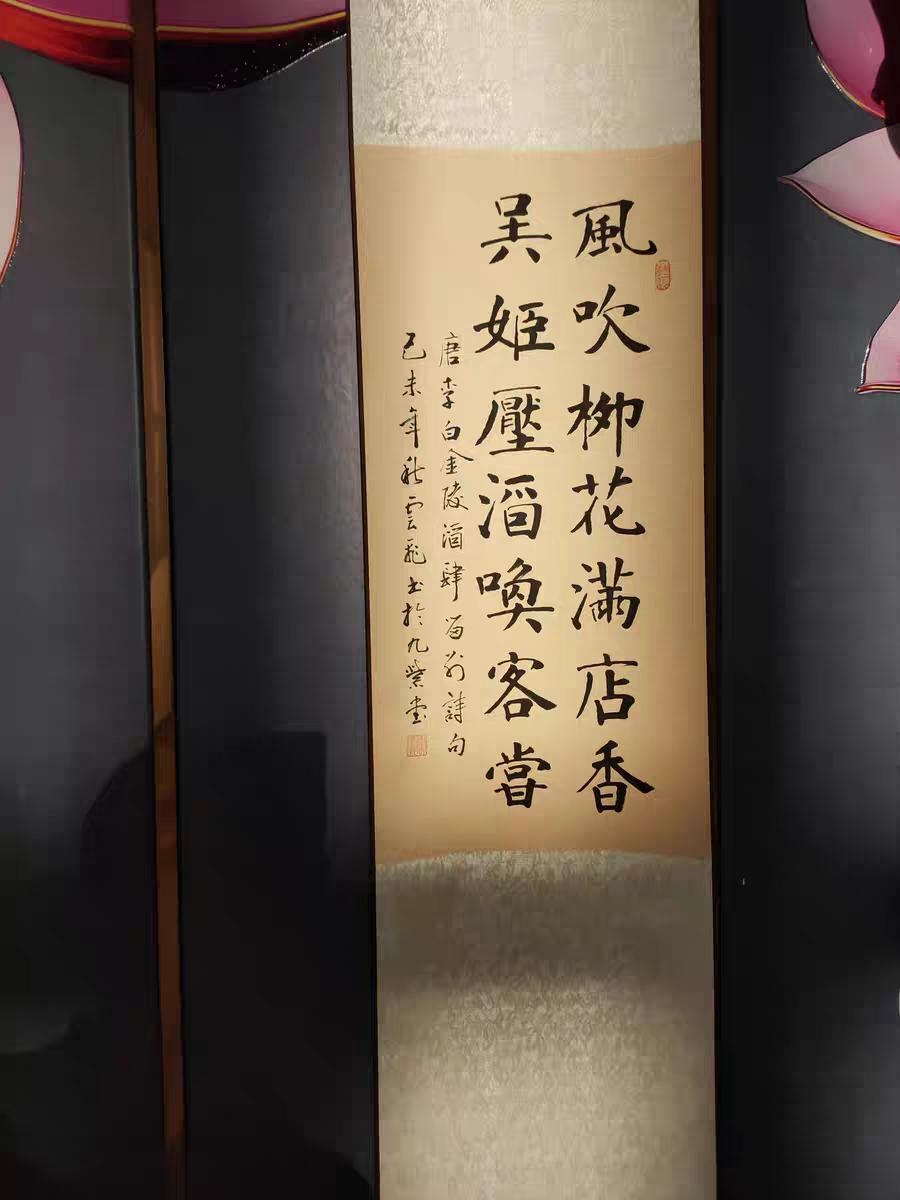 風吹柳花滿店香
吳姬壓酒喚客嘗
唐李白金陵酒肆留別詩句
己未年秋雲飛书於九紫堂